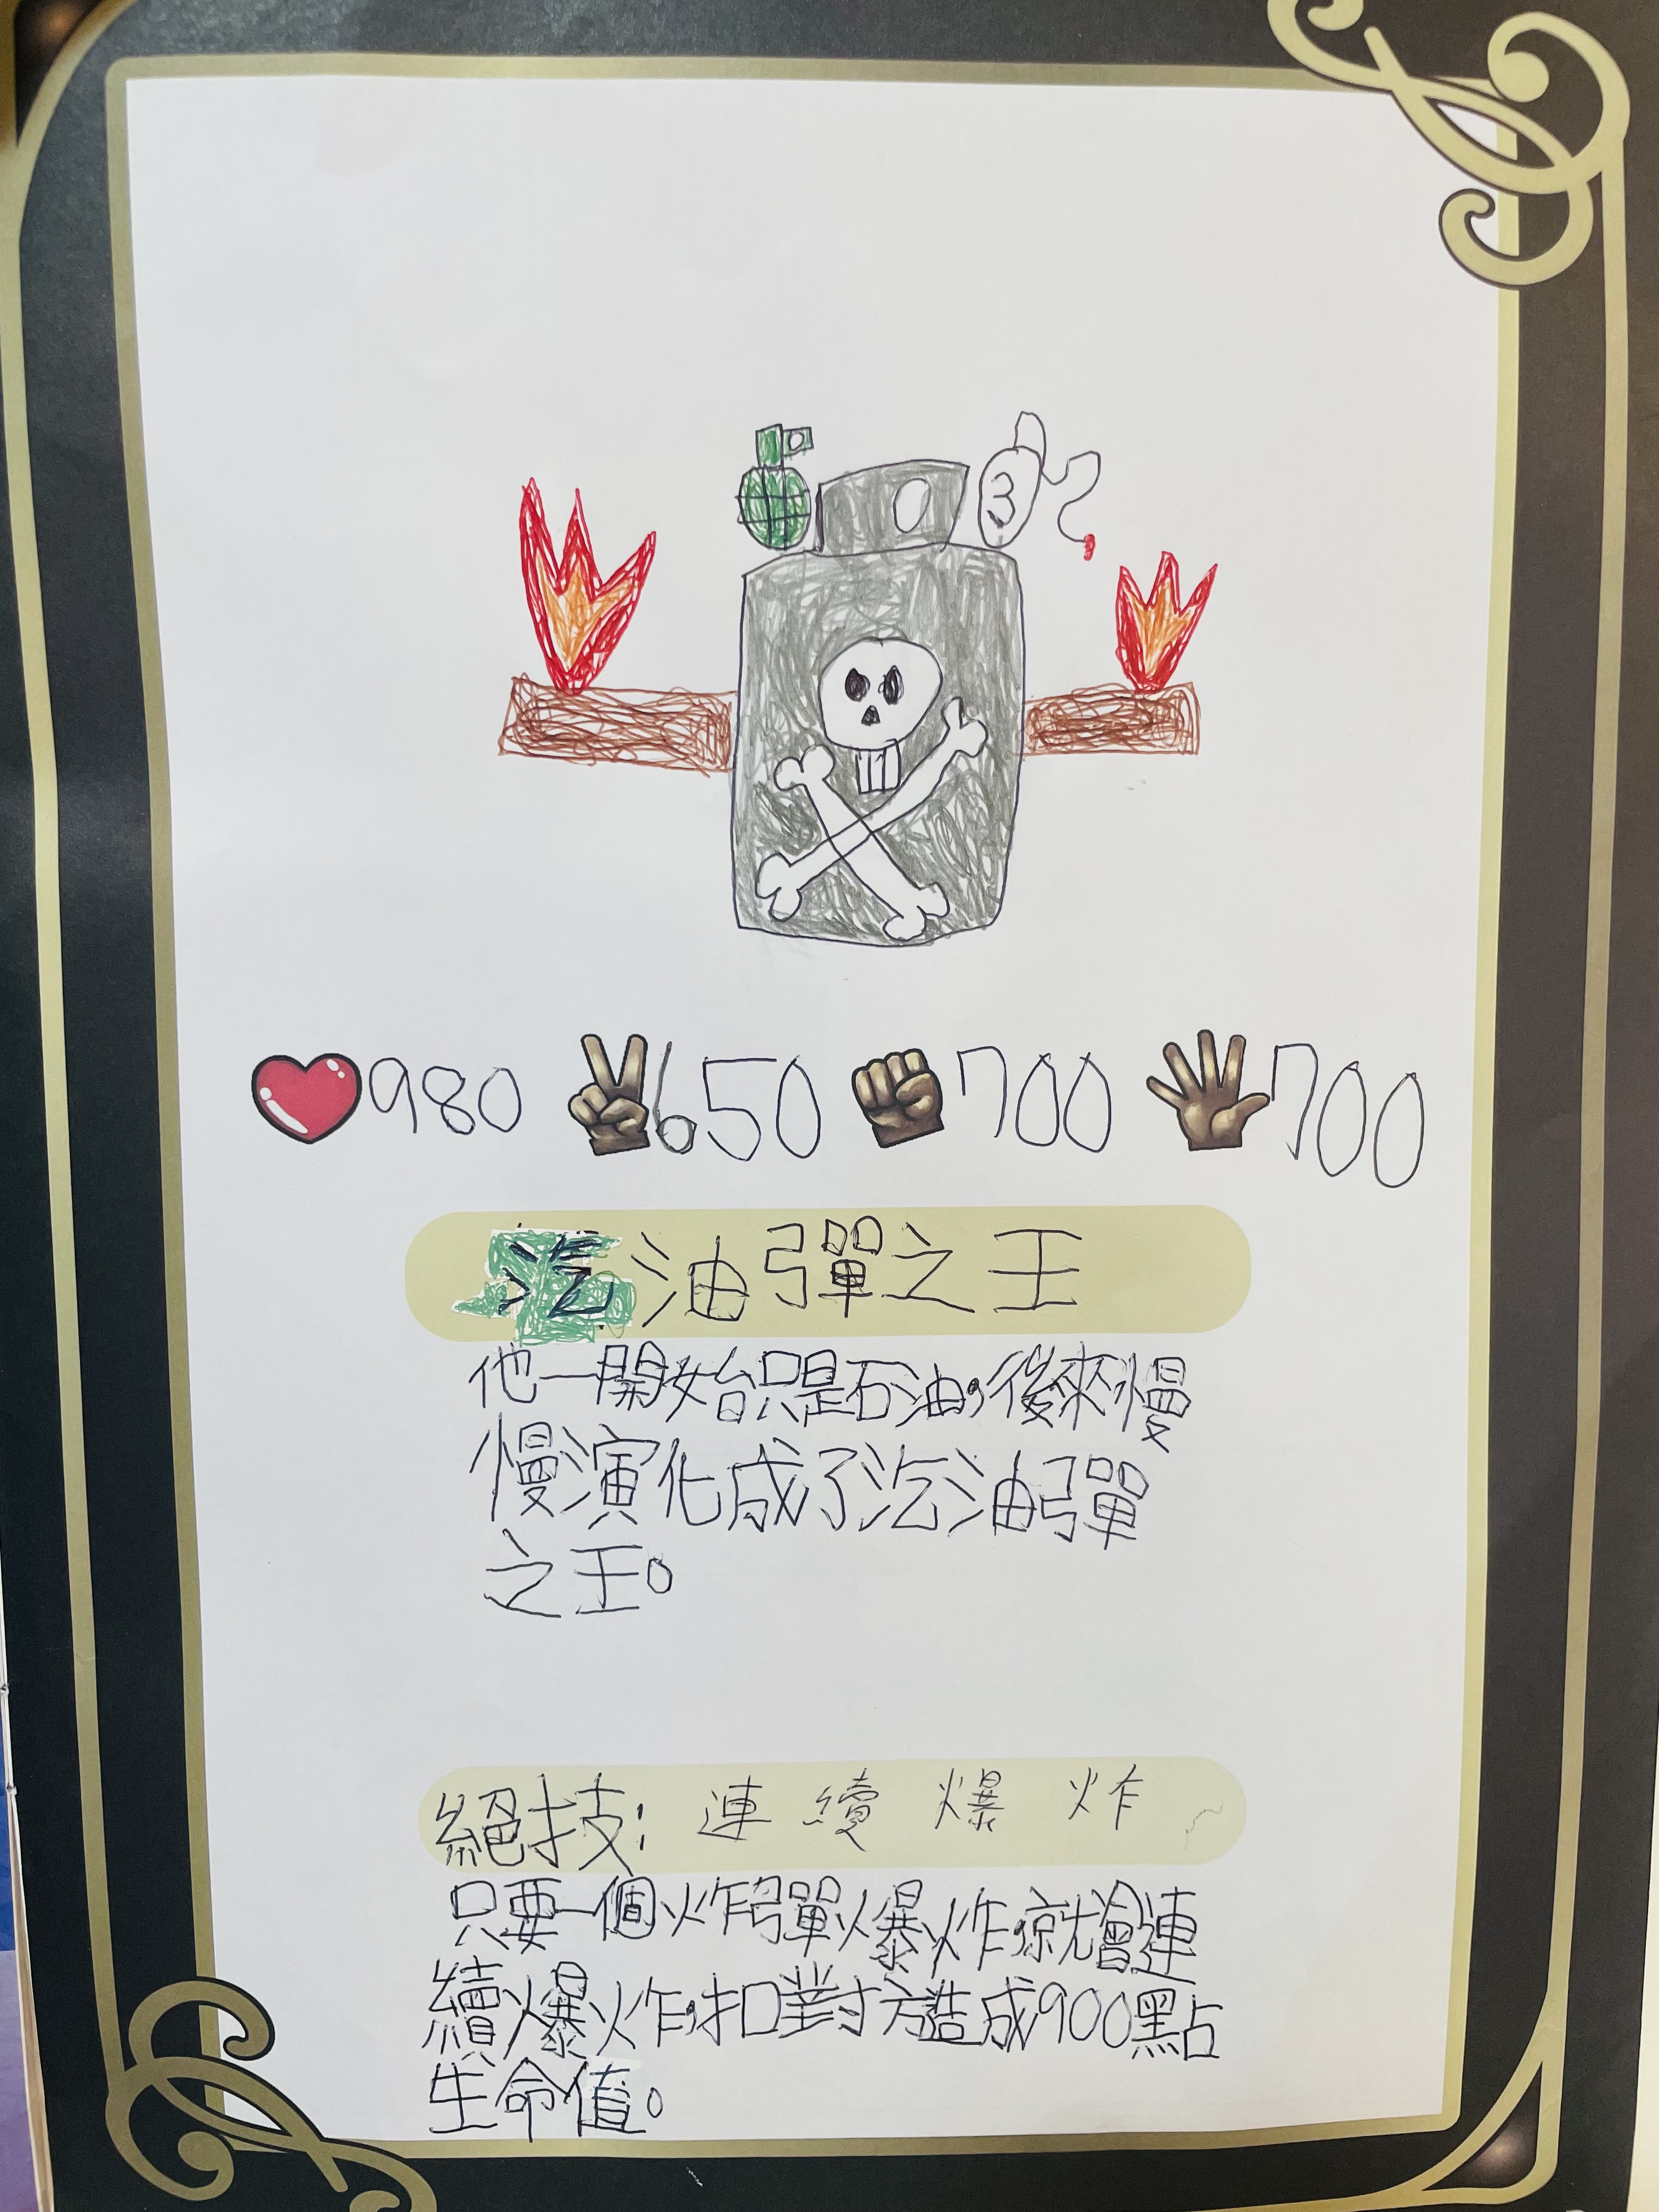 3
980 650 700 700
汽油彈之王
他一開始只是石油,後來慢
慢演化成了汽油彈
之王。
絕技: 連續爆炸
只要一個炸彈爆炸,就會連
續爆炸,扣對方造成900點
生命值。